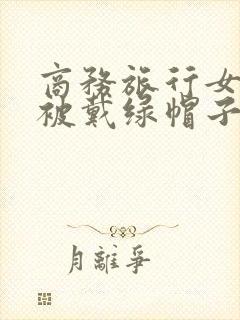 商務旅行女
被戴绿帽子
月離爭